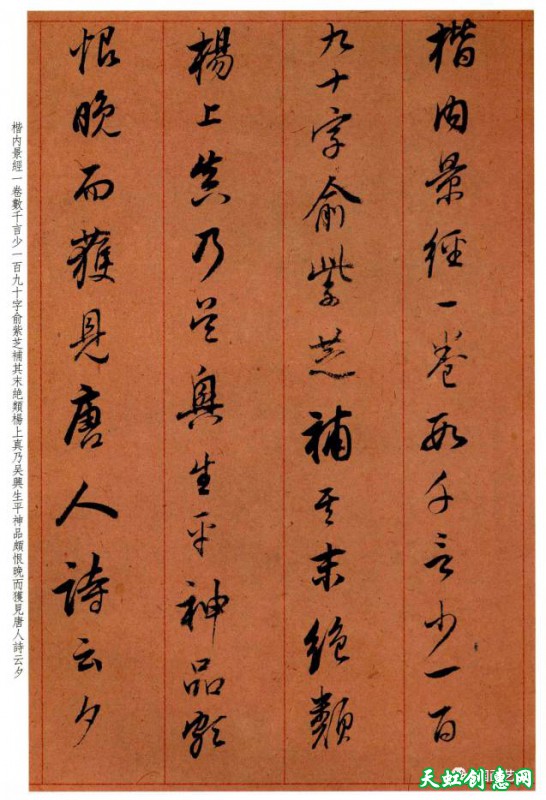 楷内景經一卷數千言少一百
九十字俞紫芝補其末絶類
楊上真乃吴興生平神品頗
恨晚而獲見唐人詩云夕
楷内景經一卷數千言少一百九十字俞紫芝補其末絶類楊上真乃吴興生平神品頗恨晚而獲見唐人詩云夕
天虹创惠网